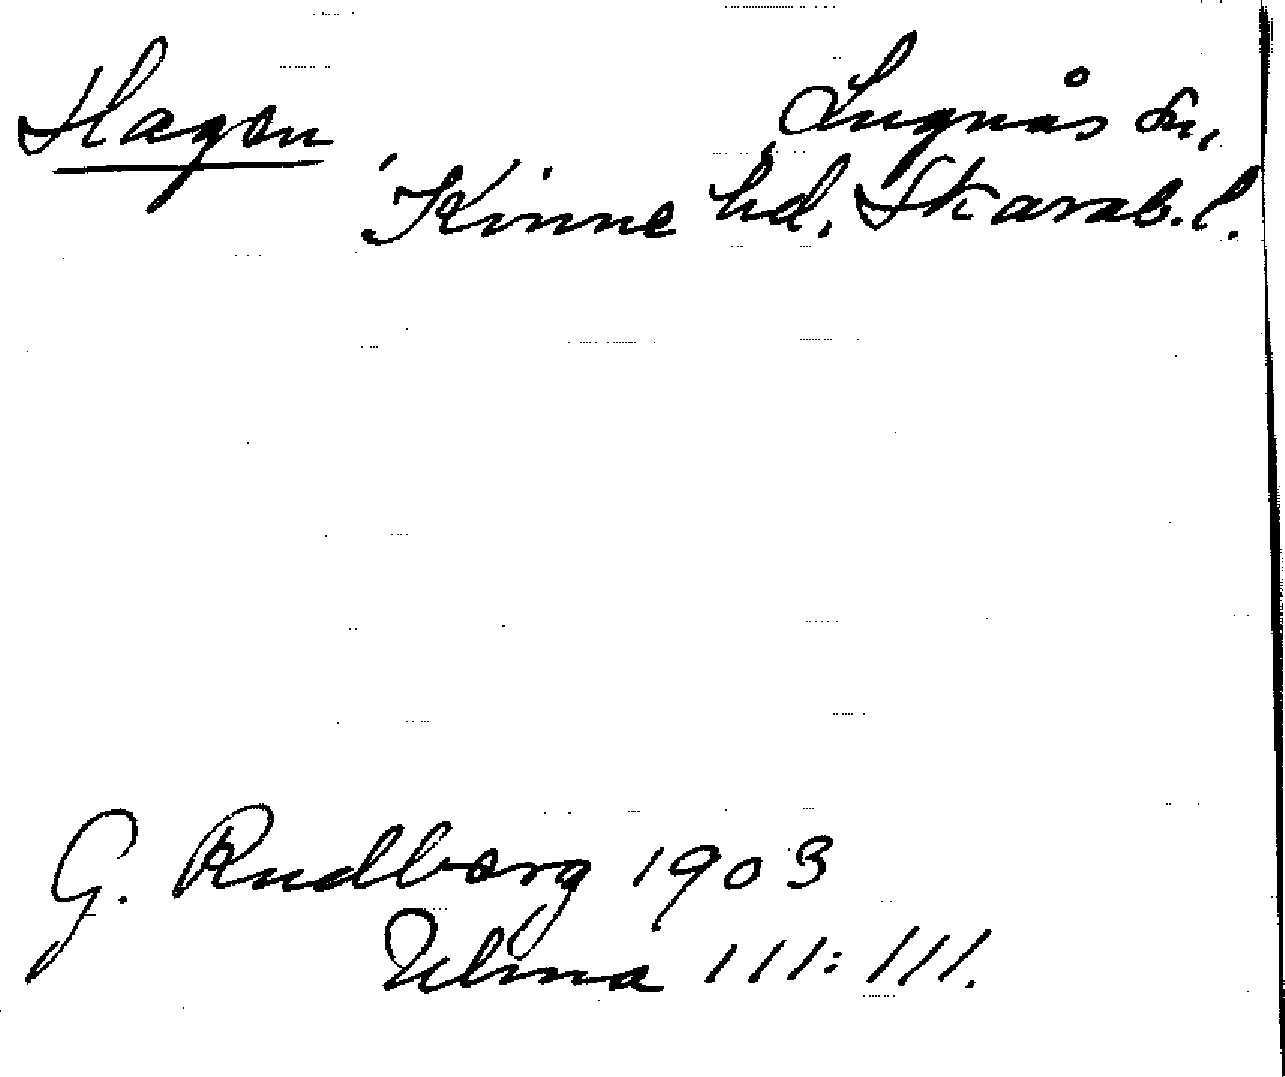 Hagen
Lugnås sn,
Kinne hd, Skarab. l.
G. Rudberg 1903
Ulma 111:111.